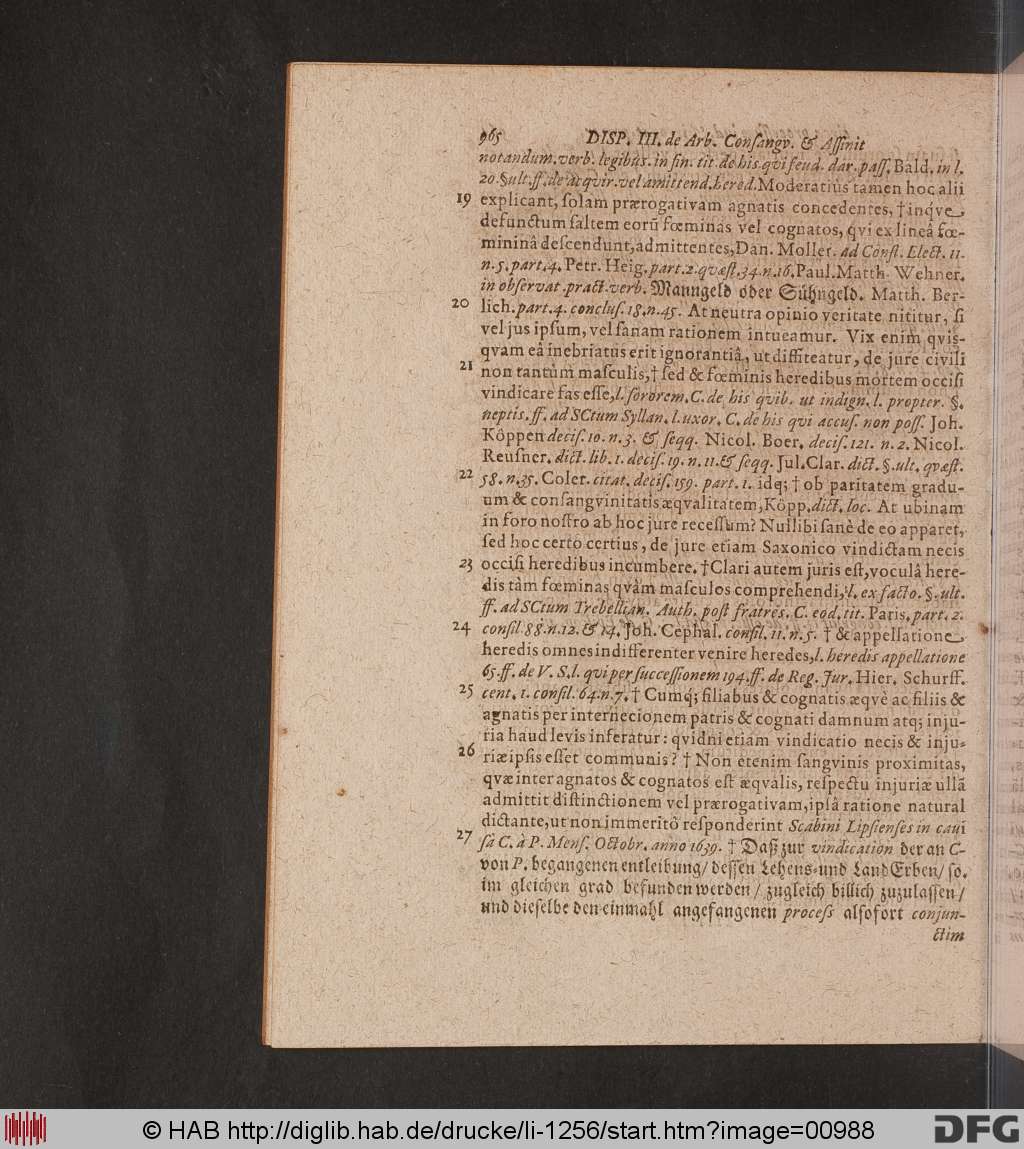 965 DISP. III. de Arb. Consangv. & Affinit
notandum. verb. legibus. in fin. tit. de his qvi feud. dar. poss. Bald. in l.
20. §ult. ff. de acqvir. vel amittend. hered. Moderatius tamen hoc alii
19 explicant, solam prærogativam agnatis concedentes, † inqve
defunctum saltem eorũ fœminas vel cognatos, qvi ex lineâ fœ-
mininâ descendunt, admittentes, Dan. Moller. ad Const. Elect. 11.
n. 5. part. 4. Petr. Heig. part. 2. qvæst. 34. n. 16. Paul. Matth. Wehner.
in observat. pract. verb. Manngeld oder Sühngeld. Matth. Ber-
20 lich. part. 4. conclus. 18. n. 45. At neutra opinio veritate nititur, si
vel jus ipsum, vel sanam rationem intueamur. Vix enim qvis-
qvam eâ inebriatus erit ignorantiâ, ut diffiteatur, de jure civili
21 non tantùm masculis, † sed & fœminis heredibus mortem occisi
vindicare fas esse, l. sororem. C. de his qvib. ut indign. l. propter. §.
neptis. ff. ad SCtum Syllan. l. uxor. C. de his qvi accus. non poss. Joh.
Köppen decis. 10. n. 3. & seqq. Nicol. Boer. decis. 121. n. 2. Nicol.
Reusner. dict. lib. 1. decis. 19. n. 11. & seqq. Jul. Clar. dict. §. ult. qvæst.
22 58. n. 35. Coler. citat. decis. 159. part. 1. idq; † ob paritatem gradu-
um & consangvinitatis æqvalitatem, Köpp. dict. loc. At ubinam
in foro nostro ab hoc jure recessum? Nullibi sanè de eo apparet,
sed hoc certo certius, de jure etiam Saxonico vindictam necis
23 occisi heredibus incumbere. † Clari autem juris est, voculâ here-
dis tàm fœminas qvàm masculos comprehendi, l. ex facto. §. ult.
ff. ad SCtum Trebellian. Auth. post fratres. C. eod. tit. Paris. part. 2.
24 consil. 88. n. 12. & 14. Joh. Cephal. consil. 11. n. 5. † & appellatione
heredis omnes indifferenter venire heredes, l. heredis appellatione
65. ff. de V. S. l. qvi per successionem 194. ff. de Reg. Jur. Hier. Schurff.
25 cent. 1. consil. 64. n. 7. † Cumq; filiabus & cognatis æqvè ac filiis &
agnatis per internecionem patris & cognati damnum atq; inju-
ria haud levis inferatur: qvidni etiam vindicatio necis & inju-
26 riæ ipsis esset communis? † Non etenim sangvinis proximitas,
qvæ inter agnatos & cognatos est æqvalis, respectu injuriæ ullã
admittit distinctionem vel prærogativam, ipsâ ratione natural
dictante, ut non immeritò responderint Scabini Lipsienses in caui
27 sâ C. à P. Mens. Octobr. anno 1639. † Daß zur vindication der an C-
von P. begangenen entleibung/ dessen Lehens- und LandErben/ so.
im gleichen grad befunden werden/ zugleich billich zuzulassen/
und dieselbe den einmahl angefangenen process alsofort conjun-
ctim
© HAB http://diglib.hab.de/drucke/li-1256/start.htm?image=00988
DFG